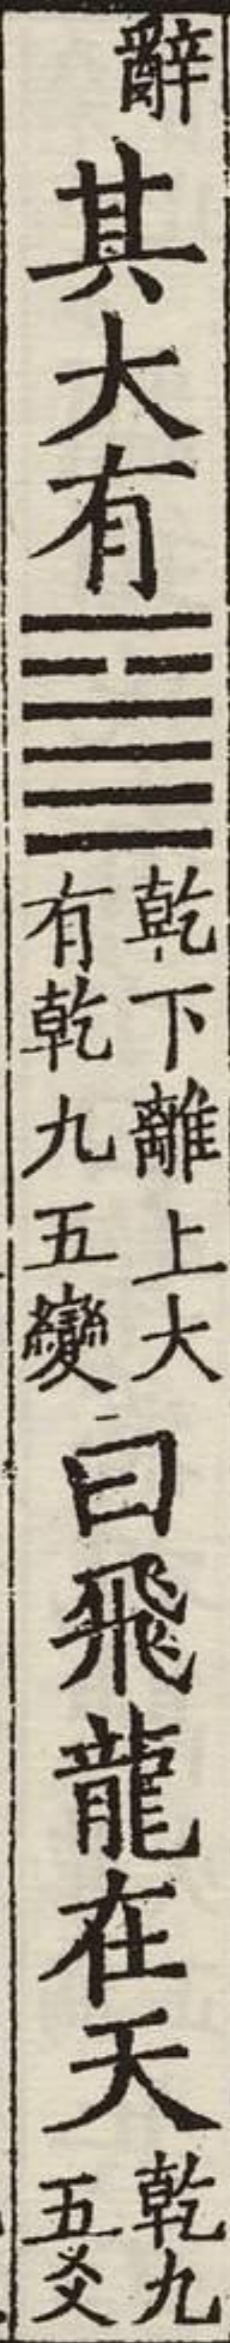 辭其大有䷍乾下離上大有乾九五變曰飛龍在天乾九五爻